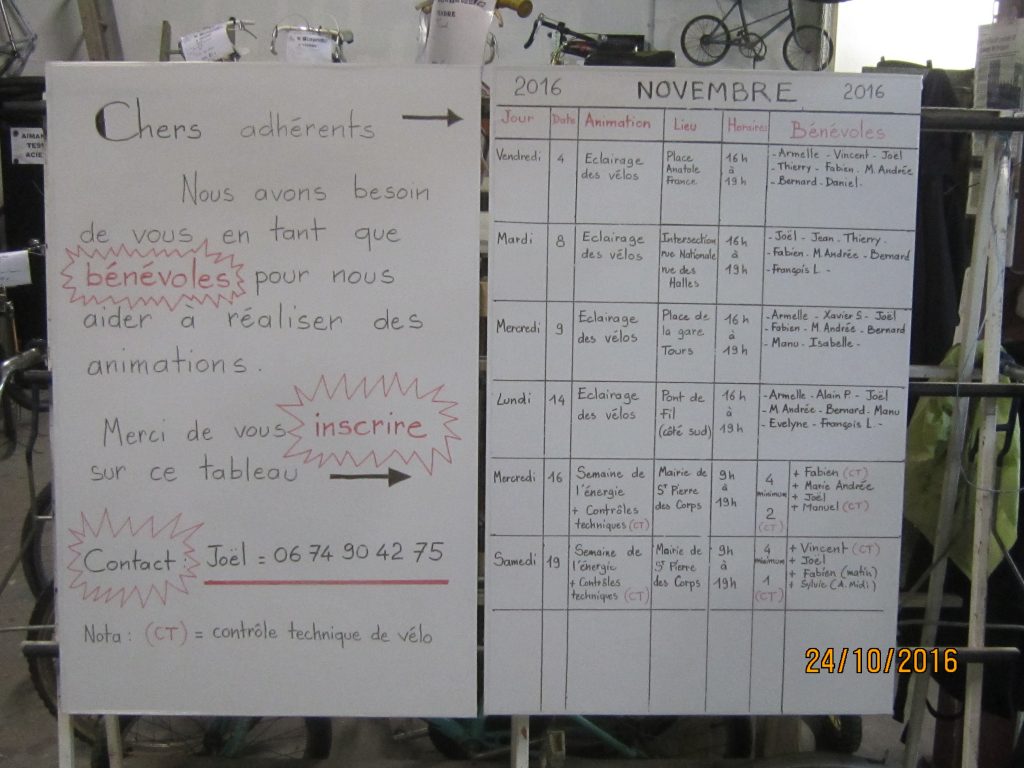 Chers adhérents
Nous avons besoin
de vous en tant que
bénévoles pour nous
aider à réaliser des
animations.
Merci de vous inscrire
sur ce tableau
Contact Joël = 06 74 90 42 75
Nota : (CT) = contrôle technique de vélo
2016 NOVEMBRE 2016
Jour Date Animation Lieu Horaires Bénévoles
Vendredi 4
Eclairage
des vélos
Place
Anatole
France.
16h
à
19h
- Armelle - Vincent - Joël
- Thierry - Fabien - M. Andrée
- Bernard - Daniel -
Mardi 8
Eclairage
des vélos
Intersection
rue Nationale
rue des
Halles
16h
à
19h
- Joël - Jean - Thierry -
- Fabien - M. Andrée - Bernard
- François L -
Mercredi 9
Eclairage
des vélos
Place de
la gare
Tours
16h
à
19h
- Armelle - Xavier S - Joël
- Fabien - M. Andrée - Bernard
- Manu - Isabelle -
Lundi 14
Eclairage
des vélos
Pont de
Fil
(côté sud)
16h
à
19h
- Armelle - Alain P. - Joël
- M Andrée - Bernard - Manu
- Evelyne - François L -
Mercredi 16
Semaine de
l'énergie
+ Contrôles
techniques (CT)
Mairie de
St Pierre
des Corps
9h
à
19h
4
minimum
2
(CT)
+ Fabien (CT)
+ Marie Andrée
+ Joël
+ Manuel (CT)
Samedi 19
Semaine de
l'énergie
+ Contrôles
techniques (CT)
Mairie de
St Pierre
des Corps
9h
à
19h
4
minimum
1
(CT)
+ Vincent (CT)
+ Joël
+ Fabien (matin)
+ Sylvie (A. Midi)
24/10/2016